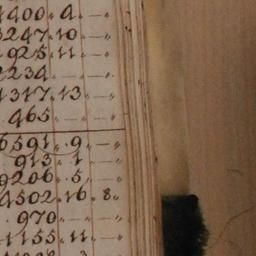 1400 „ 4 „ — „
3247 „ 10 „ — „
925 „ 11 „ — „
2234 „ — „ — „
1317 „ 13 „ — „
465 „ — „ — „
6591 „ 9 „ — „
913 „ 1 „ — „
9206 „ 5 „ — „
4502 „ 16 „ 8 „
970 „ — „ — „
1155 „ 11 „ — „